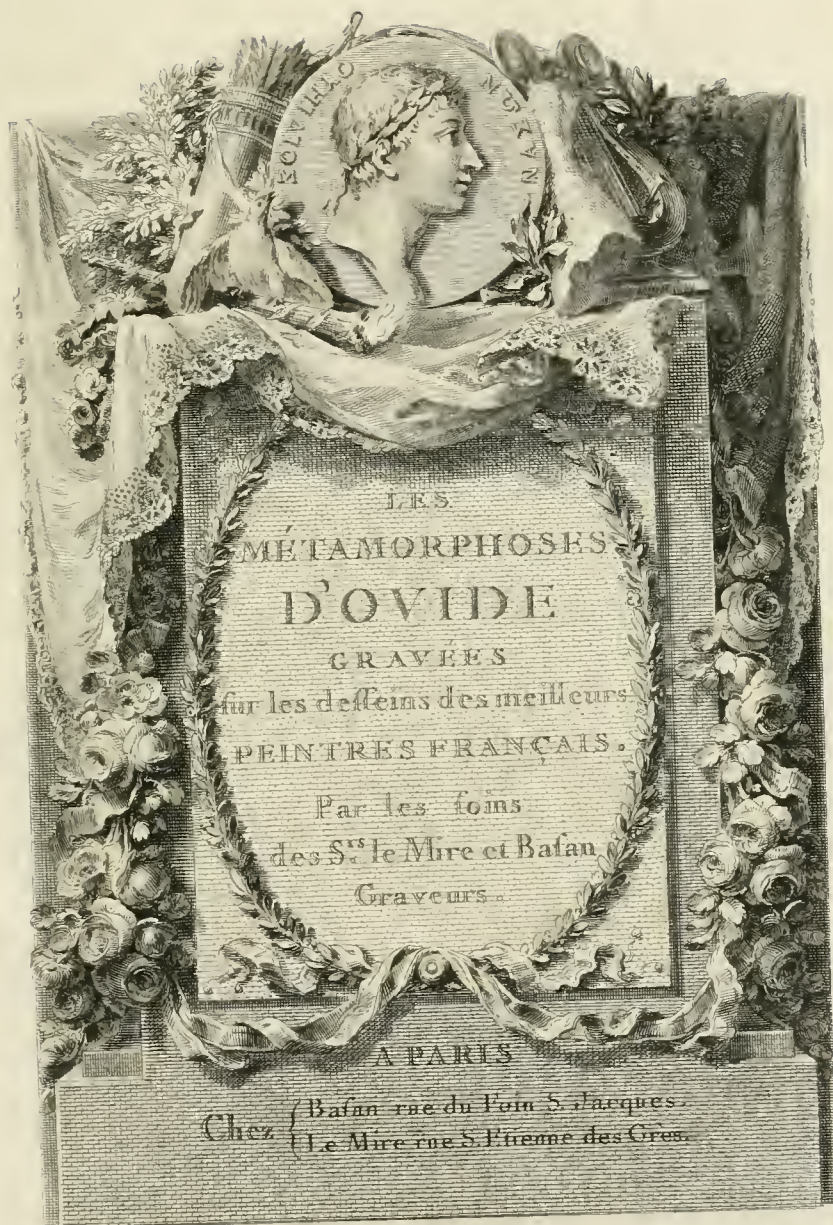 LES
MÉTAMORPHOSES
D'OVIDE
GRAVÉES
ſur les deſſeins des meilleurs
PEINTRES FRANÇAIS.
Par les ſoins
des S.rs le Mire et Baſan
Graveurs.
A PARIS
Chez { Baſan rue du Foin S. Jacques.
Le Mire rue S. Etienne des Grès.